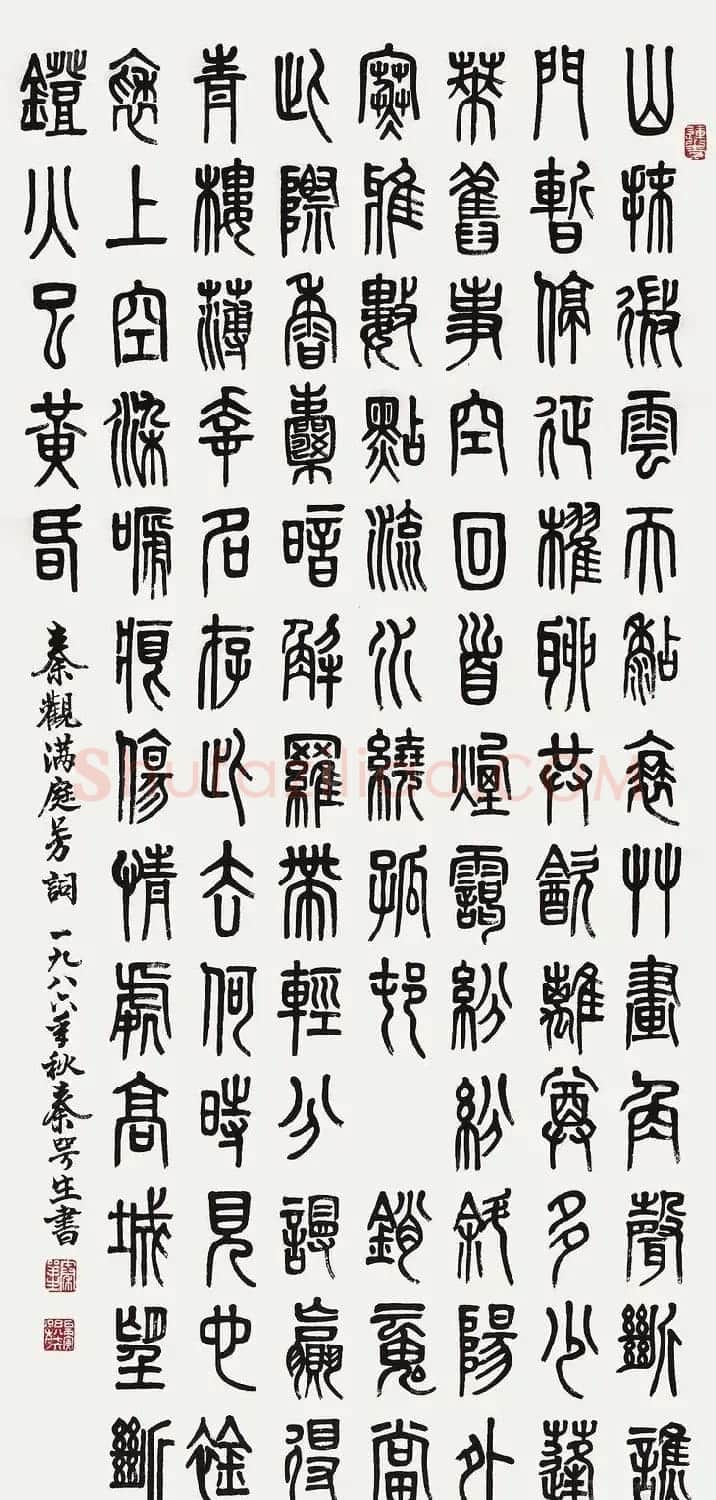 山抹微雲天黏衰艸畫角聲斷譙
門暫停征櫂聊共飲離尊多少蓬
萊舊事空回首煙靄紛紛斜陽外
寒雅數點流水繞孤邨 銷魂當
此際香囊暗解羅帶輕分謾贏得
青樓薄幸名存此去何時見也襟
褎上空染嗁痕傷情處高城望斷
鐙火已黃昏
秦觀满庭芳詞 一九八六年秋秦咢生書
Shufaziliao.COM